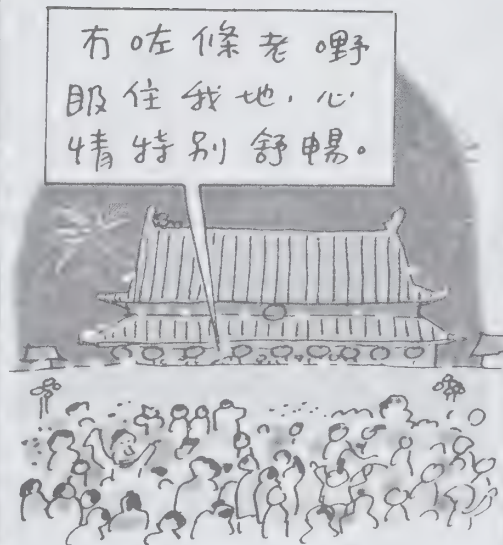 冇咗條老嘢
眼住我地，心
情特别舒暢。